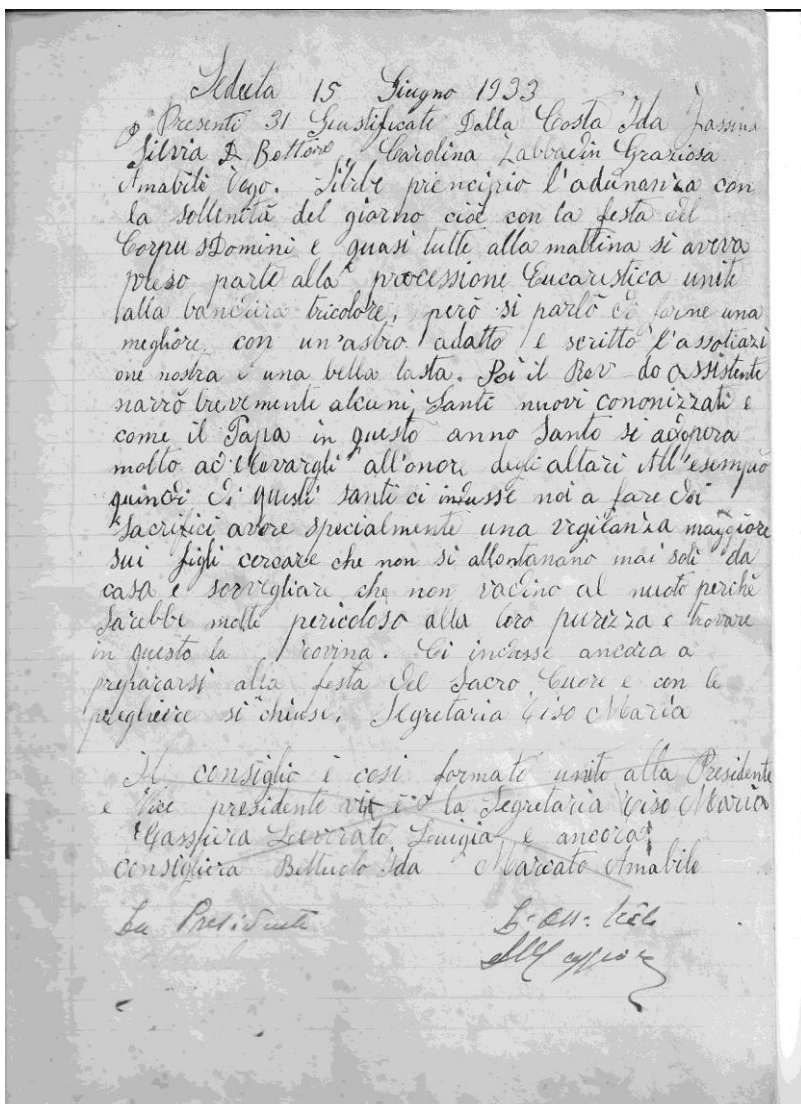 Seduta 15 Giugno 1933
Presenti 31 Giustificate Dalla Costa Ida Fassina
Silvia D Bottoro, Carolina Zabbadin Graziosa
Amabile Vego. Si diede principio l'adunanza con
la sollenità del giorno cioè con la festa del
Corpus Domini e quasi tutte alla mattina si aveva
preso parte alla processione Eucaristica unite
alla bandiera tricolore, però si parlò di farne una
megliore con un'astro adatto e scritto l'assotiazi
one nostra e una bella tasta. Poi il Rev do Assistente
narrò brevemente alcuni Santi nuovi cononizzati e
come il Papa in questo anno Santo si adopera
molto ad elevargli all'onore degli altari All'esempio
quindi di questi santi ci indusse noi a fare dei
Sacrifici avere specialmente una vegilanza maggiore
sui figli cercare che non si allontanano mai soli da
casa e sorvegliare che non vadino al nuoto perchè
Sarebbe molto pericoloso alla loro purezza e trovare
in questo la rovina. Ci indusse ancora a
prepararsi alla festa del Sacro Cuore e con le
preghiere si chiuse. Segretaria Tiso Maria
Il consiglio è cosi formato unite alla Presidente
e Vice presidente è la Segretaria Tiso Maria
Cassiera Lovorato Luigia e ancora
consigliera Bettuolo Ida Marcato Amabile
La Presidente L'Ass.